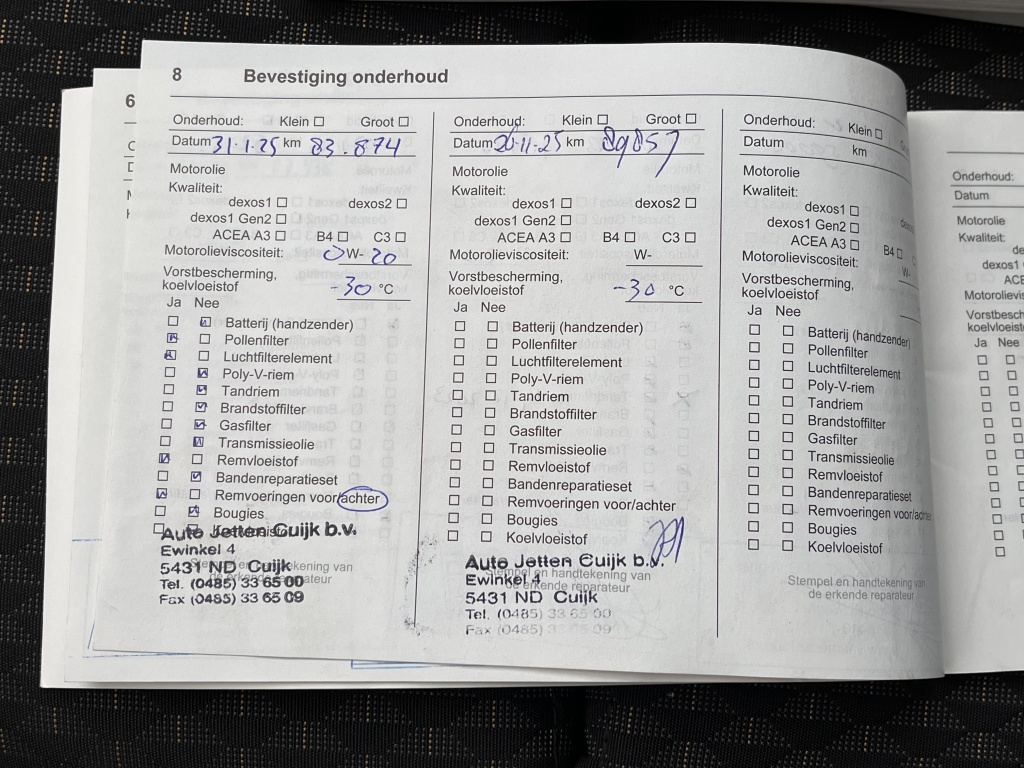 8 Bevestiging onderhoud
Onderhoud: Klein ☐ Groot ☐
Datum 31-1-25 km 83.874
Motorolie
Kwaliteit:
dexos1 ☐ dexos2 ☐
dexos1 Gen2 ☐
ACEA A3 ☐ B4 ☐ C3 ☐
Motorolieviscositeit: 0 W- 20
Vorstbescherming,
koelvloeistof -30 °C
Ja Nee
Batterij (handzender)
Pollenfilter
Luchtfilterelement
Poly-V-riem
Tandriem
Brandstoffilter
Gasfilter
Transmissieolie
Remvloeistof
Bandenreparatieset
Remvoeringen voor/achter
Bougies
Koelvloeistof
Auto Jetten Cuijk b.v.
Ewinkel 4
5431 ND Cuijk
Tel. (0485) 33 65 00
Fax (0485) 33 65 09
Stempel en handtekening van
de erkende reparateur
Onderhoud: Klein ☐ Groot ☐
Datum 26-11-25 km 89857
Motorolie
Kwaliteit:
dexos1 ☐ dexos2 ☐
dexos1 Gen2 ☐
ACEA A3 ☐ B4 ☐ C3 ☐
Motorolieviscositeit: W-
Vorstbescherming,
koelvloeistof -30 °C
Ja Nee
Batterij (handzender)
Pollenfilter
Luchtfilterelement
Poly-V-riem
Tandriem
Brandstoffilter
Gasfilter
Transmissieolie
Remvloeistof
Bandenreparatieset
Remvoeringen voor/achter
Bougies
Koelvloeistof
Auto Jetten Cuijk b.v.
Ewinkel 4
5431 ND Cuijk
Tel. (0485) 33 65 00
Fax (0485) 33 65 09
Stempel en handtekening van
de erkende reparateur
Onderhoud: Klein ☐
Datum km
Motorolie
Kwaliteit:
dexos1 ☐
dexos1 Gen2 ☐
ACEA A3 ☐ B4 ☐
Motorolieviscositeit: W-
Vorstbescherming,
koelvloeistof
Ja Nee
Batterij (handzender)
Pollenfilter
Luchtfilterelement
Poly-V-riem
Tandriem
Brandstoffilter
Gasfilter
Transmissieolie
Remvloeistof
Bandenreparatieset
Remvoeringen voor/achter
Bougies
Koelvloeistof
Stempel en handtekening van
de erkende reparateur
6
Onderhoud:
Datum
Motorolie
Kwaliteit:
dexos1
Ja Nee